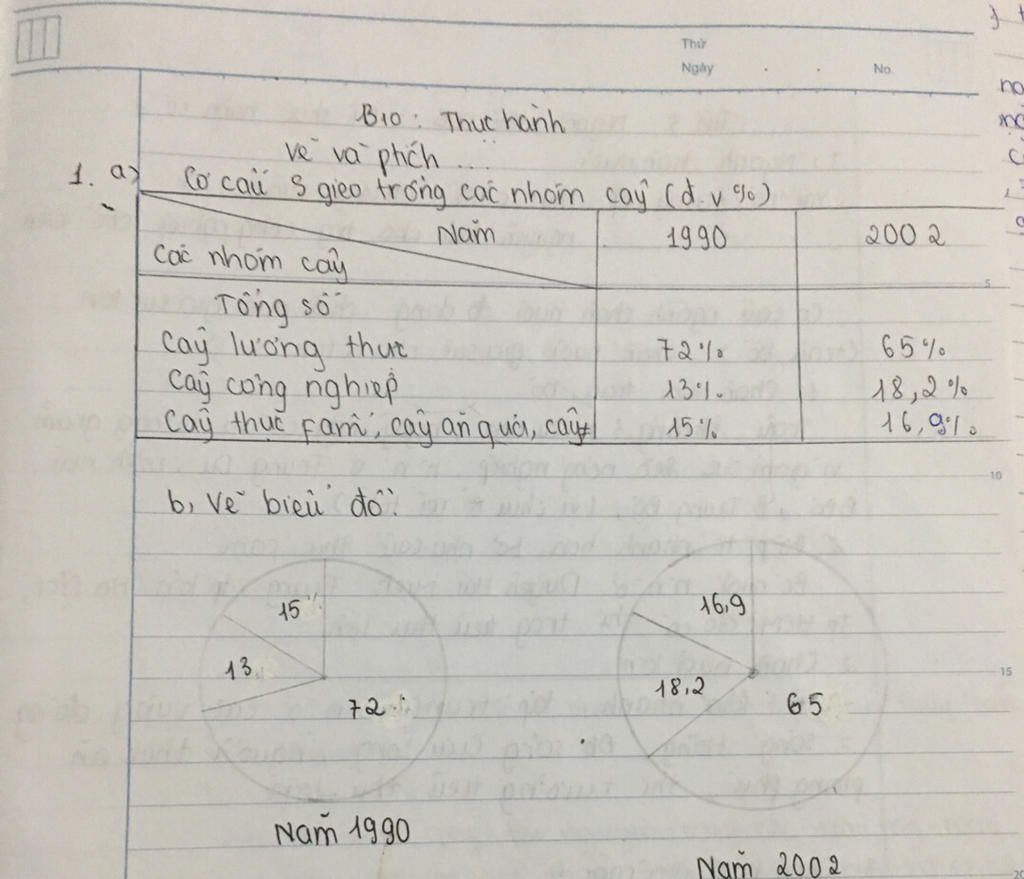 Thứ
Ngày . . No.
B10: Thực hành
Vẽ và ptích ...
1. a) Cơ cấu S gieo trồng các nhóm cây (đ.v %)
Năm 1990 2002
Các nhóm cây
Tổng số
Cây lương thực 72% 65%
Cây công nghiệp 13% 18,2%
Cây thực fẩm, cây ăn quả, cây≠ 15% 16,9%
5
b, Vẽ biểu đồ:
10
15 16,9
13 18,2
72 65
15
Năm 1990
Năm 2002
20